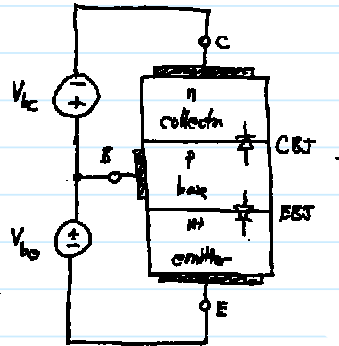 C
n
Vbc
collector
CBJ
B
p
base
EBJ
Vbe
n+
emitter
E